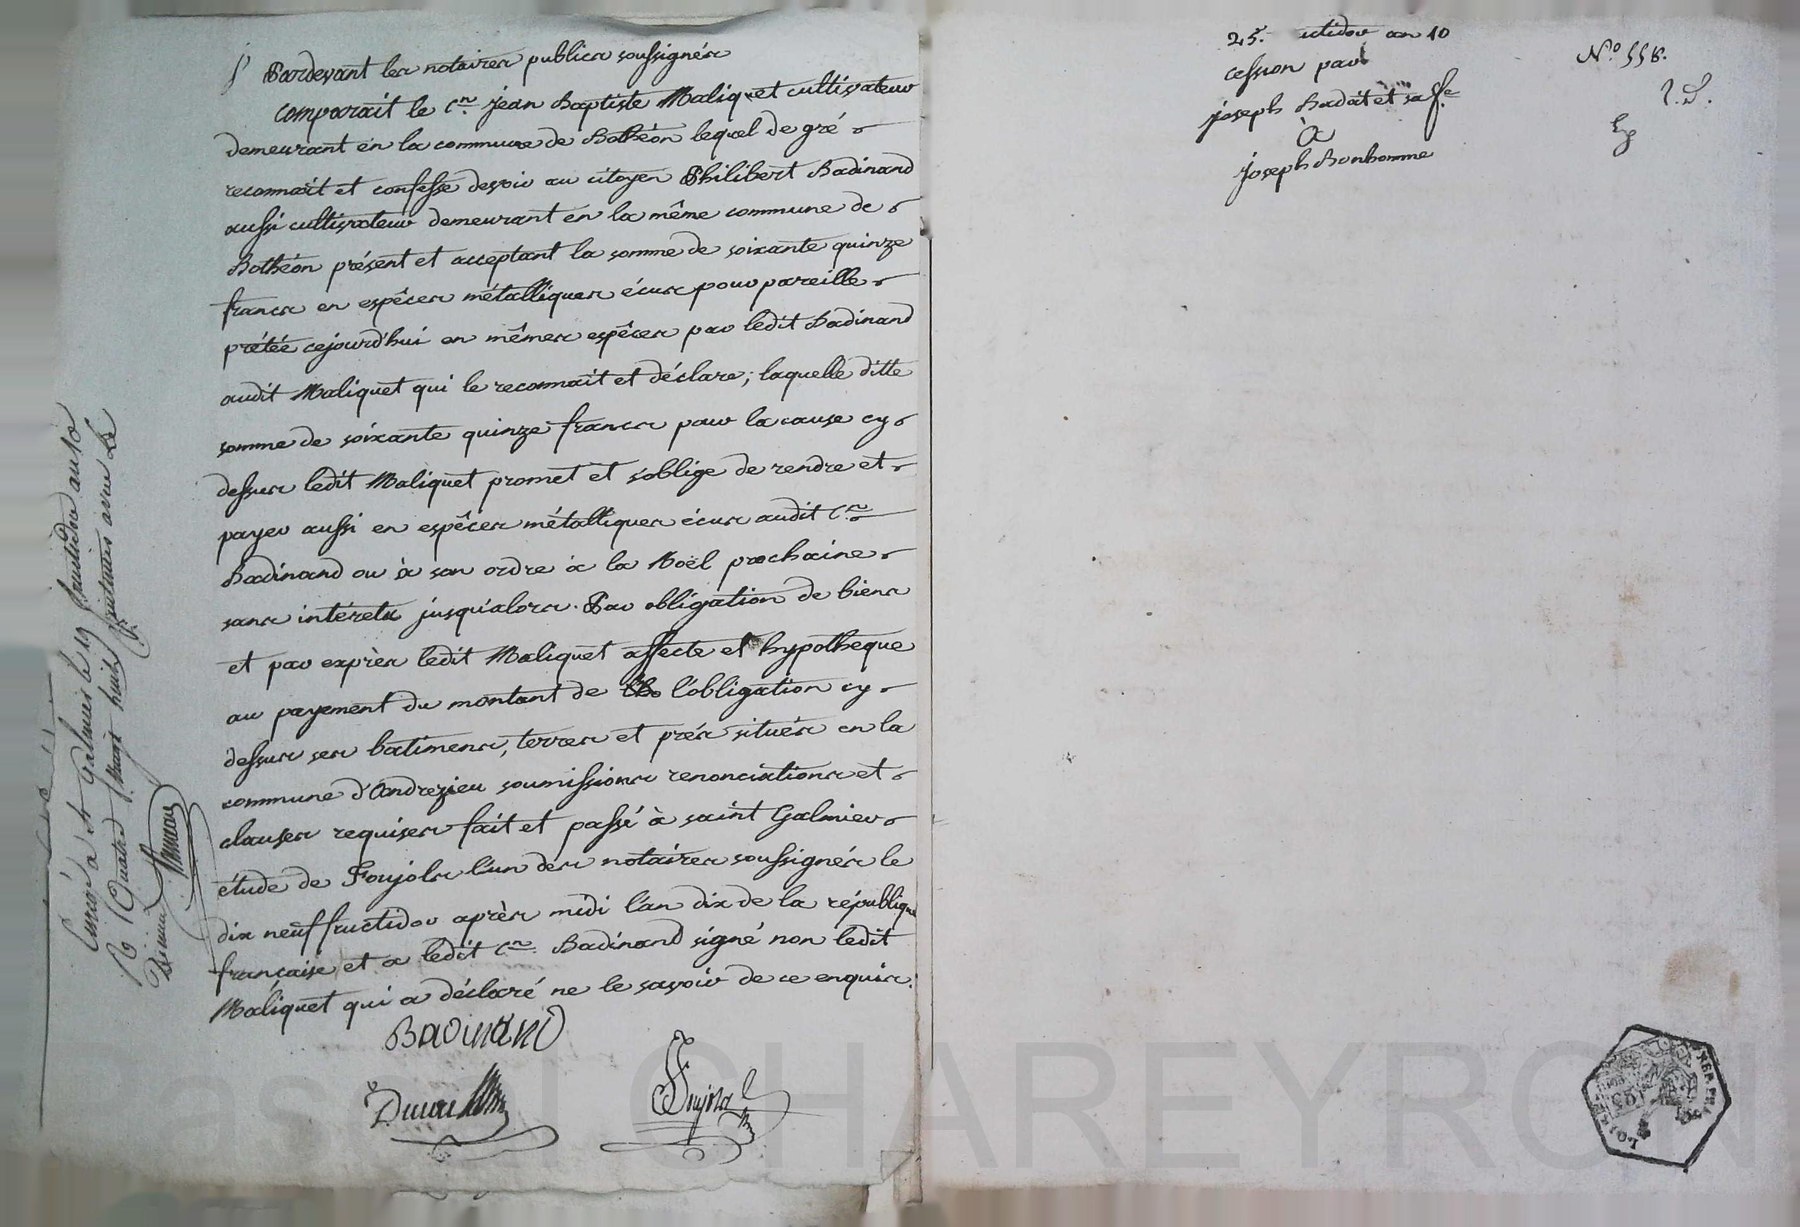 Pardevant les notaires publics soussignés
comparait le Cen. jean Baptiste Maliquet cultivateur
demeurant en la commune de Bothéon lequel de gré
reconnait et confesse devoir au citoyen Philibert Badinand
aussi cultivateur demeurant en la même commune de
Bothéon présent et acceptant la somme de soixante quinze
francs en espêces métalliques écus pour pareille
prétée cejourd'hui en mêmes espêces par ledit Badinand
audit Maliquet qui le reconnait et déclare; laquelle ditte
somme de soixante quinze francs pour la cause cy
dessus ledit Maliquet promet et s'oblige de rendre et
payer aussi en espêces métalliques écus audit Cen
Badinand ou à son ordre à la Noël prochaine
sans intérets jusqu'alors. Par obligation de biens
et par exprès ledit Maliquet affecte et hypothéque
au payement du montant de l'obligation cy
dessus ses batimens, terres et prés situés en la
commune d'Andrezieu soumissions renonciations et
clauses requises fait et passé à saint Galmier
étude de Foujols l'un des notaires soussignés le
dix neuf fructidor après midi l'an dix de la république
française et a ledit Cen. Badinand signé non ledit
Maliquet qui a déclaré ne le savoir de ce enquis.
BADINAND
Foujols
à St Galmier le 19 fructidor an 10
quatre francs huit centimes
25. ctidor an 10
cession par
joseph Badat et sa fe
à
joseph Bonhomme
N.o 558.
Pascal CHAREYRON